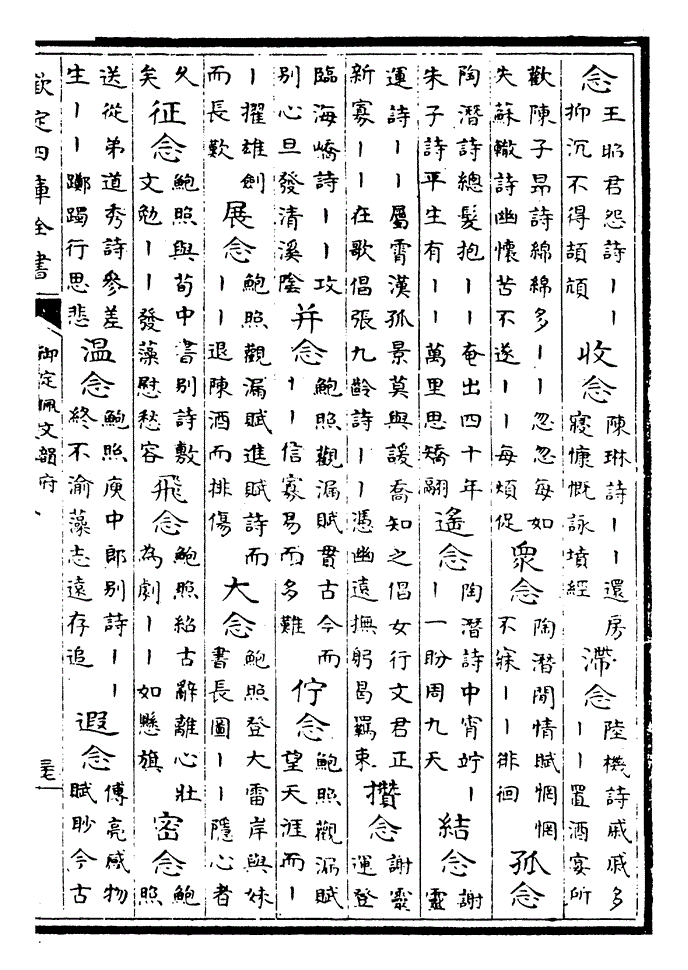 念王昭君怨詩丨丨抑沉不得頡頏收念陳琳詩丨丨還房寢慷慨詠墳經滯念陸機詩戚戚多丨丨置酒宴所
歡陳子昂詩綿綿多丨丨忽忽每如失蘇轍詩幽懷苦不遂丨丨每煩促衆念陶潛閒情賦惘惘不寐丨丨徘徊孤念
陶潛詩總髮抱丨丨奄出四十年朱子詩平生有丨丨萬里思矯翮遙念陶潛詩中宵竚丨丨一盼周九天結念謝靈
運詩丨丨屬霄漢孤景莫與諼喬知之倡女行文君正新寡丨丨在歌倡張九齡詩丨丨憑幽遠撫躬曷羈束攢念謝靈運登
臨海嶠詩丨丨攻別心旦發清溪陰并念鮑照觀漏賦貫古今而丨丨信寡易而多難佇念鮑照觀漏賦望天涯而丨
丨擢雄劍而長歎展念鮑照觀漏賦進賦詩而丨丨退陳酒而排傷大念鮑照登大雷岸與妹書長圖丨丨隱心者
久矣征念鮑照與荀中書別詩敷文勉丨丨發藻慰愁容飛念鮑照紹古辭離心壯為劇丨丨如懸旗密念鮑照
送從弟道秀詩參差生丨丨躑躅行思悲温念鮑照庾中郎別詩丨丨終不渝藻志遠存追遐念傅亮感物賦眇今古
欽定四庫全書
御定佩文韻府